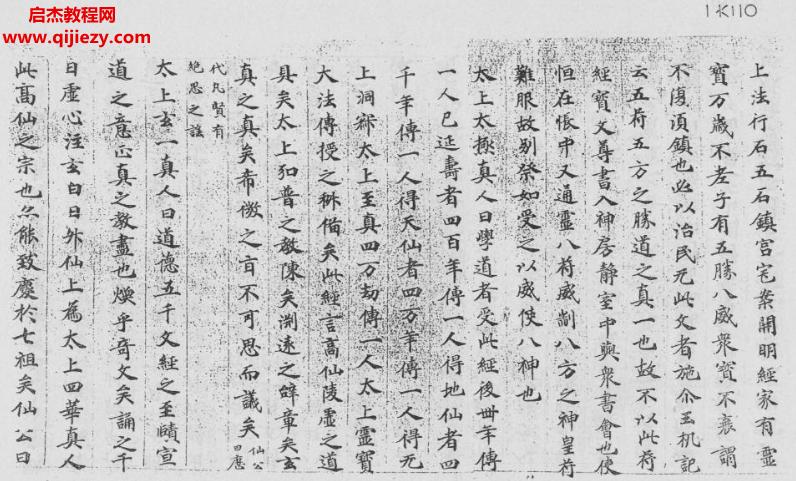 启杰教程网
www.qijiezy.com
1K110
上法行石五石鎮宮宅案開明經家有靈
寶万歲不老子有五勝八威眾寶不衰謂
不復須鎮也此以治民无此文者施尒玉机記
云五苻五方之勝道之真一也故不以此苻
經寶文尊書入神房靜室中與眾書會也使
恒在悵中又通靈八苻威制八方之神皇苻
難服故別祭如受之以威使八神也
太上太極真人曰學道者受此經後卌年傳
一人已延壽者四百年傳一人得地仙者四
千年傳一人得天仙者四万年傳一人得无
上洞寂太上至真四万劫傳一人太上靈寶
大法傳授之科備矣此經言高仙陵虛之道
具矣太上弘普之教陳矣淵遠之辞章矣玄
真之真矣希微之音不可思而議矣 仙公曰應
代凡賢有絕思之談
太上玄一真人曰道德五千文經之至賾宣
道之意正真之教盡也煥乎奇文矣誦之千
日虛心注玄白日升仙上為太上四華真人
此高仙之宗也亦能致慶於七祖矣仙公曰